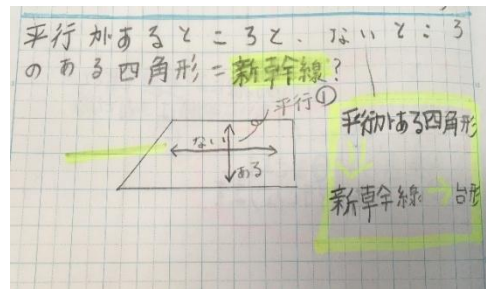 平行があるところと、ないところ
のある四角形=新幹線?
平行①
ない
ある
平行がある四角形
新幹線→台形